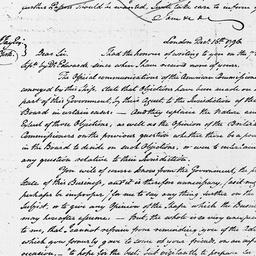 further Papers should be wanted, I will take care to inform you
I am &c &c
London Decr 16th 1796
Dear Sir. I had the honour of writing to you on the 7th
Septr by Dr Edwards since when I have received none of yours.
The Official communications of the American Commissioners
conveyed by this Ship, state that Objections have been made on the
part of this Government, by their Agent, to the Jurisdiction of the
Board in certain cases — And they explain the Nature and
Extent of those Objections, as well as the Opinion of the British
Commissioners on the previous question whether there be a power
in the Board to decide on such Objections, or even to entertain
any question relative to their Jurisdiction.
You will of course know from the Government, the present
State of this Business, and it is therefore unnecessary, and might
perhaps be improper, for me to say any thing further on the
Subject, or to give any Opinion of the Shape which the Business
may hereafter assume. — But, the whole is so very unexpected
to me, that I cannot refrain from reminding you of the Advice
which you formerly gave to some of your friends, on an important
occasion, — to hope for the best, but vigilantly to prepare